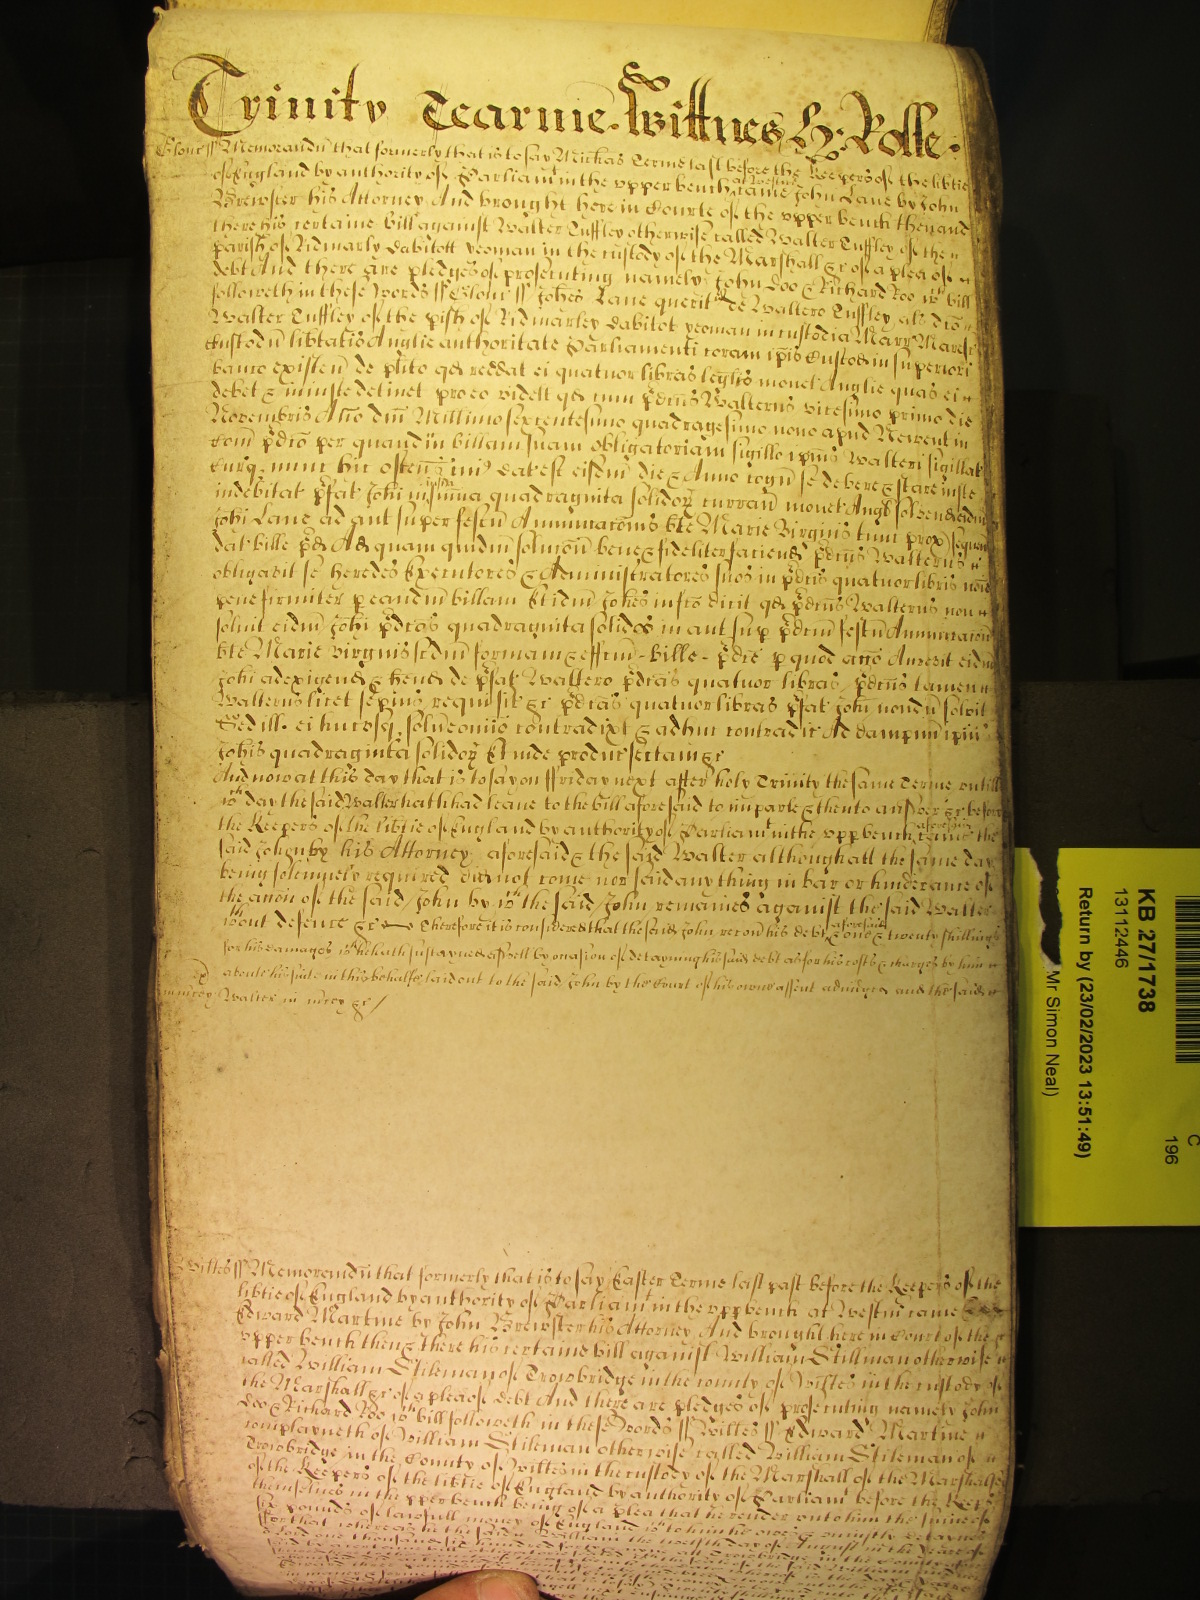 Trinity Tearme. Wittnes H: Rolle.
Glouc ss Memorandū that formerly that is to say Michas Terme last before the Keepers of the libtie
of England by authority of Parliamt in the upper bench at Westmr came John Lane by John
Brewster his Attorney And brought here in Courte of the upper bench then and
there his certaine bill against Walter Tuffley otherwise called Walter Tuffley of the
parish of Ridmarly Dabitott yeoman in the custody of the Marshall &c of a plea of
debt And there are pledges of prosecuting namely John Doo & Richard Roo wch bill
followeth in these Words ss Glouc ss Johes Lane querit de Waltero Tuffley als dco
Walter Tuffley of the pish of Ridmarley Dabitot yeoman in custodia Marr Maresc
Custodū libtatis Anglie authoritate Parliamenti coram ipis Custod in superiori
banco existen de plito qd reddat ei quatuor libras leglis monet Anglie quas ei
debet & iniuste detinet pro eo videlt qd cum pdcus Walterus vicesimo primo die
Novembris Ano dni Millimo sexcentesimo quadragesimo nono apud Newent in
Com pdco per quand billam suam obligatoriam sigillo ipius Walteri sigillat
Curq nunc hic ostens cuius dat est eisdm die & Anno cogn se debere & stare iuste
indebitat pfat Johi in ista suma quadraginta solidor curran monet Angl solvend eidm
Johi Lane ad aut super festu Annunciacois bte Marie Virginis tunc prox sequen
dat bille pd Ad quam quidm solucou bene & fideliter faciend pdcus Walterus
obligavit se heredes Executores & Administratores suos in pdcis quatuor libris noie
pene firmiter p eandm billam Et idm Johes in fco dicit qd pdcus Walterus non
solvit eidm Johi pdcas quadraginta solidos in aut sup pdcm festu Annunciacon
bte Marie virginis scdm formam & effcm - bille - pdce p quod acco Accrevit eidm
Johi ad exigend & hend de pfat Waltero pdcas quatuor libras / pdcus tamen
Walterus licet sepius requisit &c pdcas quatuor libras pfat Johi nondu solvit
Sed ill. ei hucusq solvere omnio contradixt & adhuc contradic Ad dampnu ipius
Johis quadraginta solidor Et inde producit sectam &c
And now at this day that is to say on ffriday next after holy Trinity the same Terme untill
wch day the said Walter hath had leave to the bill aforesaid to imparle & then to answer &c before
the Keepers of the libtie of England by authority of Parliamt in the upp bench aforesaid came the
said John by his Attorney aforesaid & the said Walter although att the same day
being solemnely required did not come nor said any thing in bar or hinderance of
the acon of the said John by wch the said John remaines against the said Walter
wthout defence &c Therefore it is considered that the said John recou his debt aforesaid & one & twenty shillings
for his damages wch he hath sustayned aswell by occasion of detayning his said debt as for his costs & charges by him
about his suite in this behalfe laid out to the said John by the Court of his owne assent adiudged and the said
in mercy Walter in mercy &c /
Wiltes ss Memorandū that formerly that is to say Easter Terme last past before the Keepers of the
libtie of England by authority of Parliamt in the upp bench at Westmr came
Edward Martine by John Brewster his Attorney And brought here in Court of the
upper bench then & there his certaine bill against William Stillman otherwise
called William Stileman of Trowbridge in the county of Wiltes in the custody of
the Marshall &c of a plea of debt And there are pledges of prosecuting namely John
Doo & Richard Roo wch bill followeth in these Words ss Wiltes ss Edward Martine
complayneth of William Stileman otherwise called William Stileman of
Trowbridge in the County of Wiltes in the custody of the Marshall of the Marshalsey
of the Keepers of the libtie of England by authority of Parliamt before the Keeps
themselves in the upper bench being of a plea that he render unto him the summe of
six pounds of lawfull money of England wch to him he owes & uniustly detaynes
ffor that whereas the said William the twelfth day of August in the yeare of
KB 27/1738
13112446
Return by (23/02/2023 13:51:49)
Mr Simon Neal)
C
196